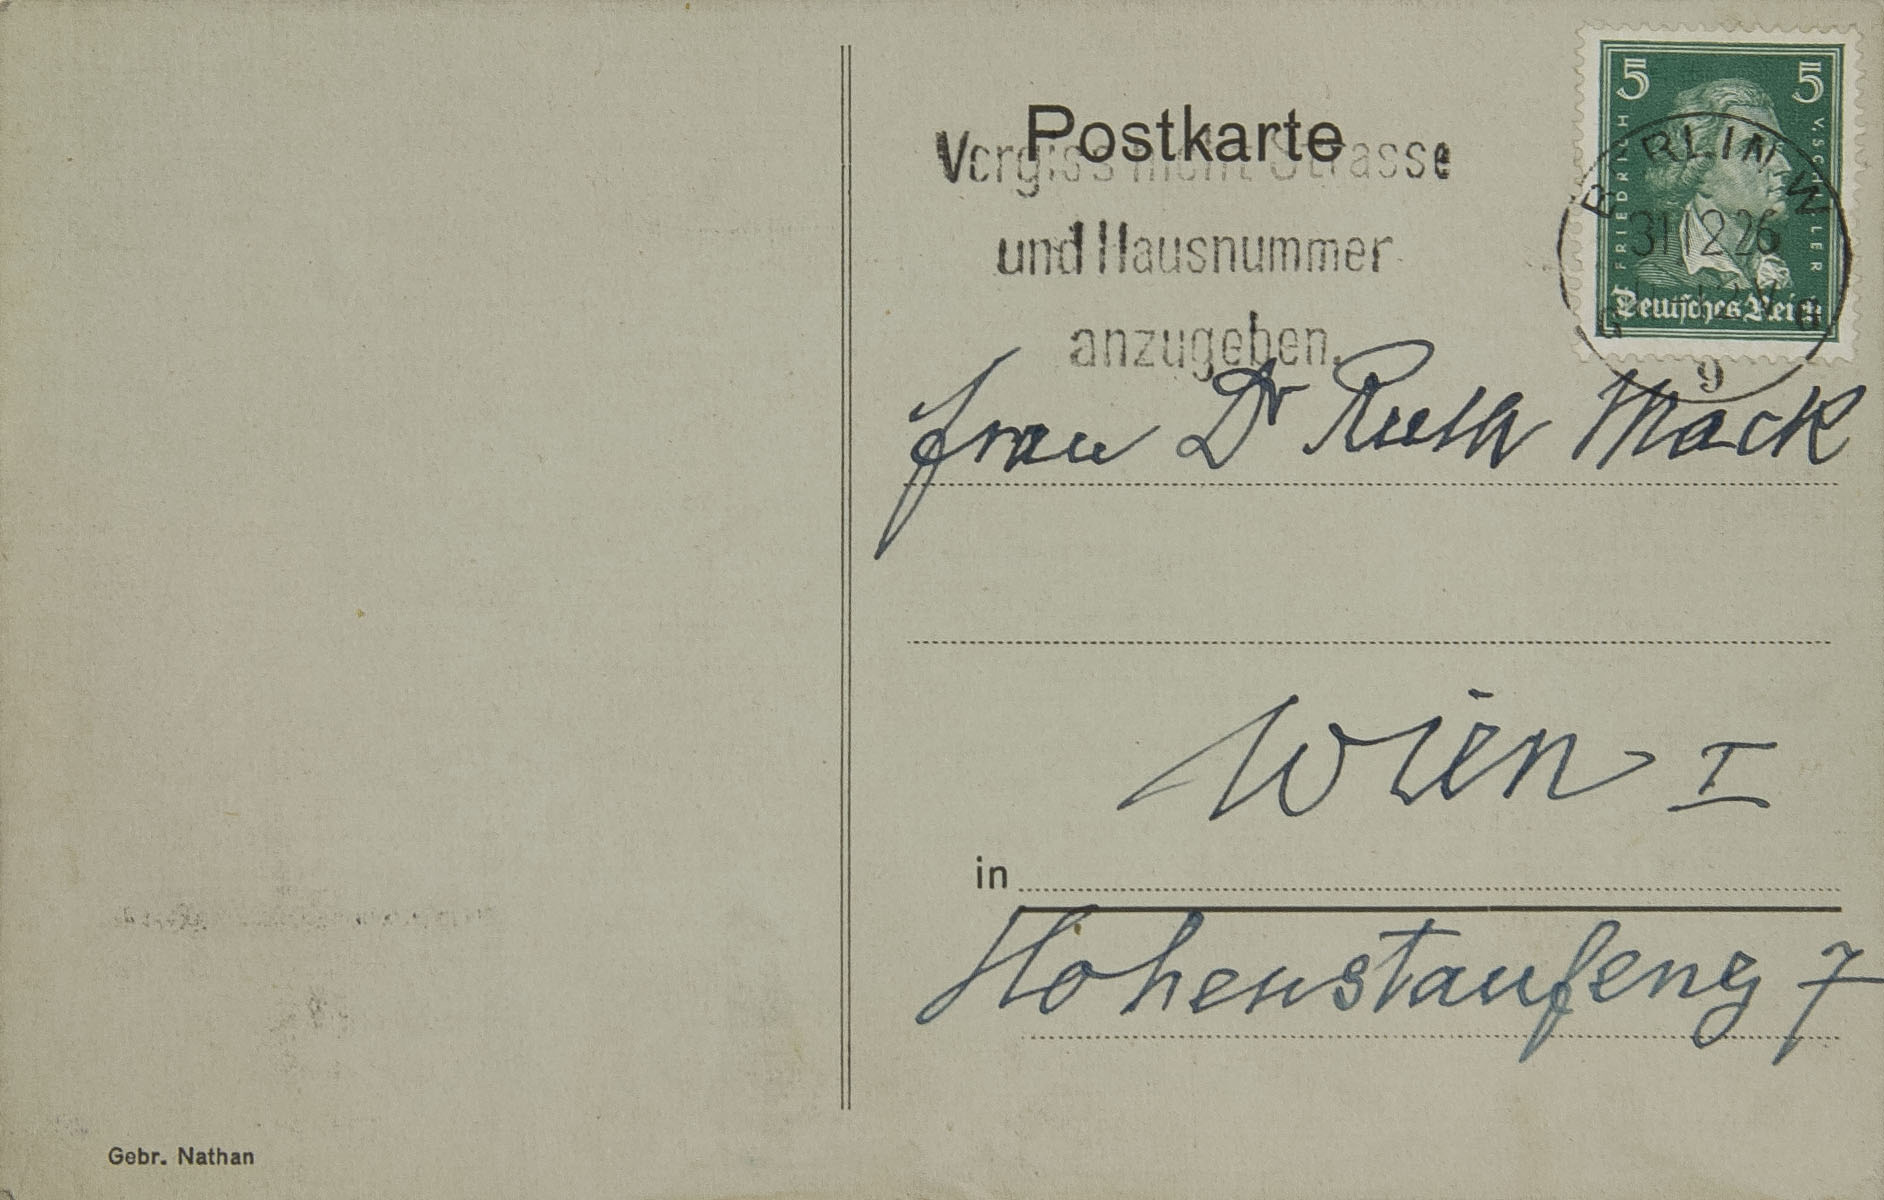 Postkarte
Vergiss nicht Strasse
und Hausnummer
anzugeben.
5 5
FRIEDRICH V. SCHILLER
Deutsches Reich
BERLIN W
31.12.26
9
Frau Dr Ruth Mack
Wien I
in
Hohenstaufeng 7
Gebr. Nathan